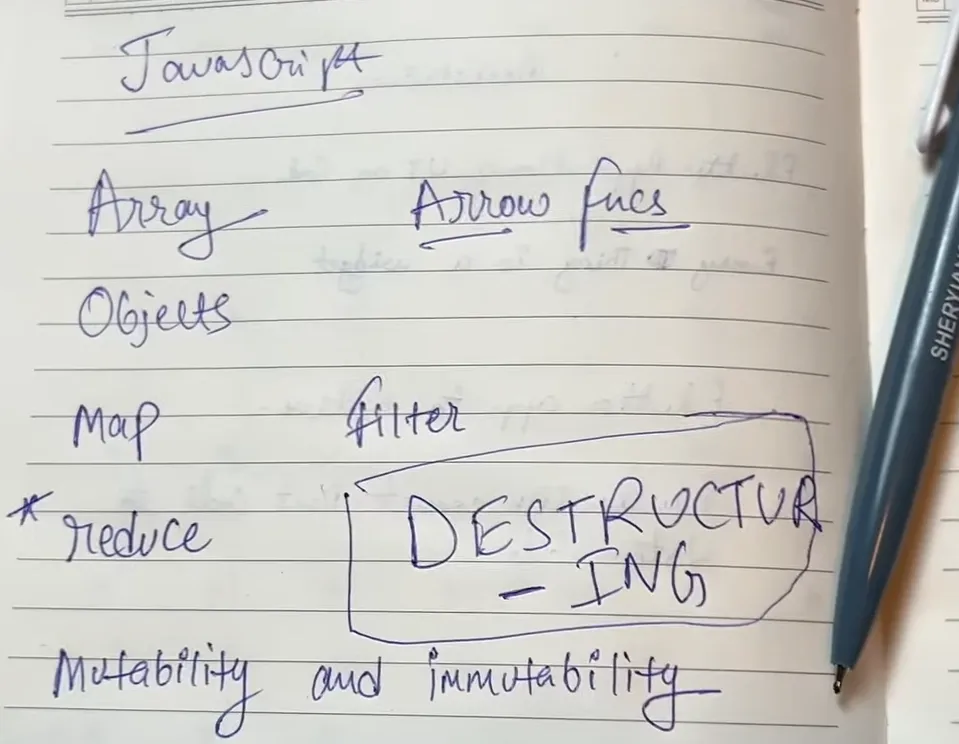 Javascript
Array Arrow fucs
Objects
Map filter
* reduce
DESTRUCTUR
- ING
Mutability and immutability
SHERYIAN